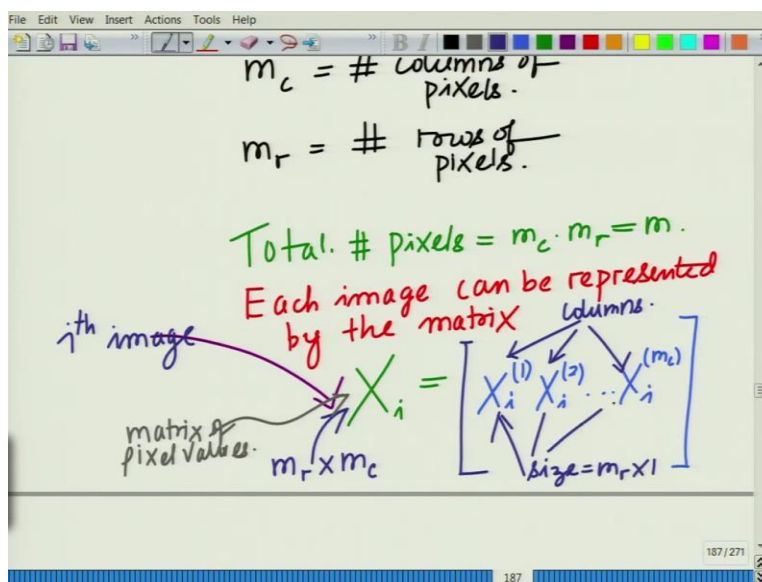 File Edit View Insert Actions Tools Help
B I
m_c = # columns of
pixels.
m_r = # rows of
pixels.
Total. # pixels = m_c · m_r = m.
Each image can be represented
by the matrix
columns.
i^th image
X_i = [ X_i^(1) X_i^(2) ... X_i^(m_c) ]
matrix of
pixel values.
m_r × m_c
size = m_r × 1
187 / 271
187